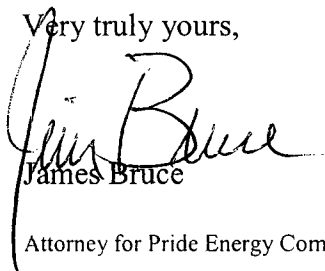 Very truly yours,
Jim Bruce
James Bruce
Attorney for Pride Energy Com